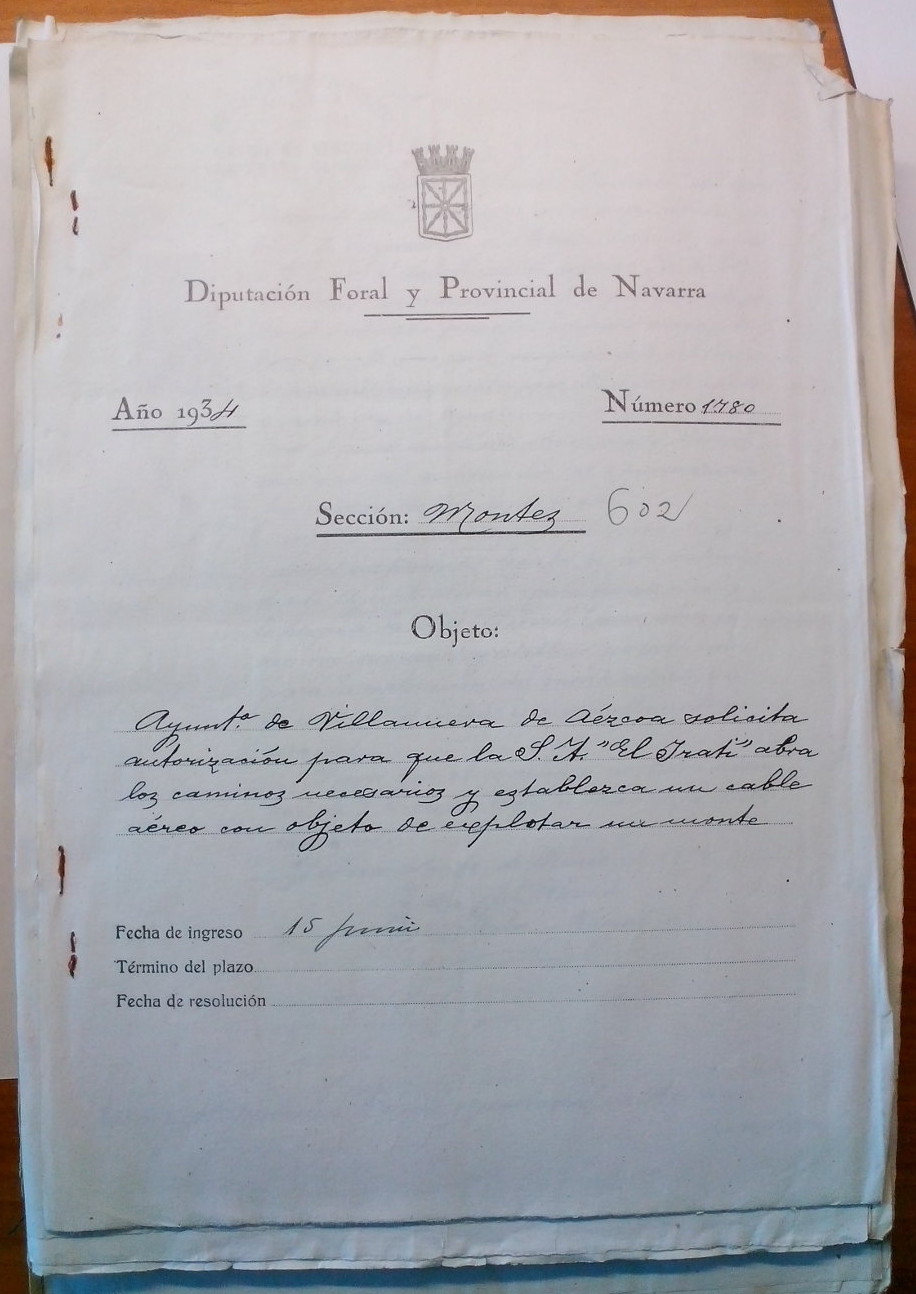 Diputación Foral y Provincial de Navarra
Año 1934
Número 1780
Sección: Montes 602
Objeto:
Ayuntº de Villanueva de Aézcoa solicita
autorización para que la S. A. "El Irati" abra
los caminos necesarios y establezca un cable
aéreo con objeto de explotar un monte
Fecha de ingreso 15 junio
Término del plazo
Fecha de resolución